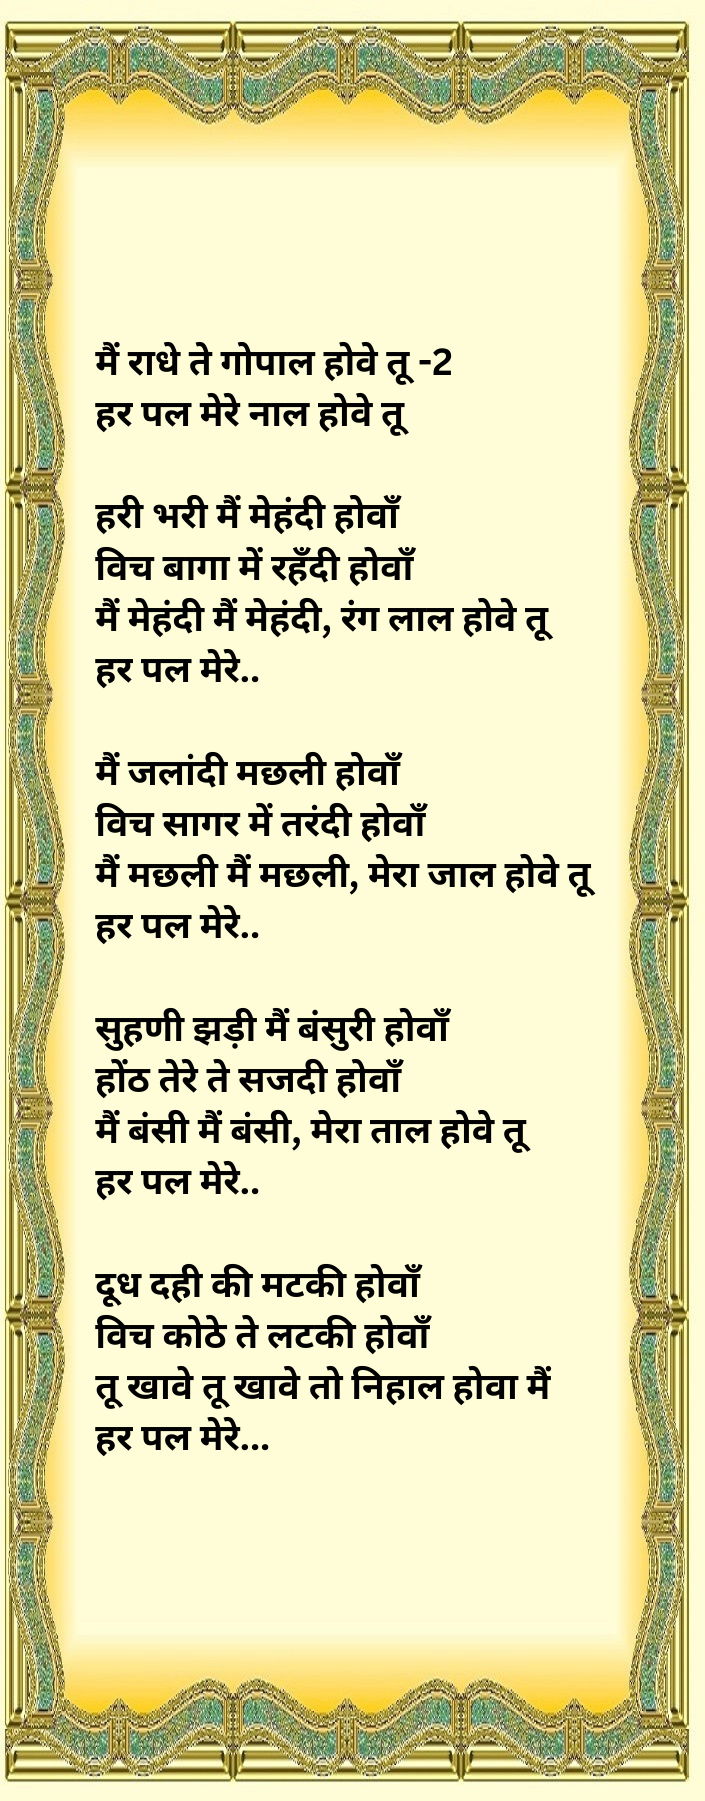 मैं राधे ते गोपाल होवे तू -2
हर पल मेरे नाल होवे तू
हरी भरी मैं मेहंदी होवाँ
विच बागा में रहँदी होवाँ
मैं मेहंदी मैं मेहंदी, रंग लाल होवे तू
हर पल मेरे..
मैं जलांदी मछली होवाँ
विच सागर में तरंदी होवाँ
मैं मछली मैं मछली, मेरा जाल होवे तू
हर पल मेरे..
सुहणी झड़ी मैं बंसुरी होवाँ
होंठ तेरे ते सजदी होवाँ
मैं बंसी मैं बंसी, मेरा ताल होवे तू
हर पल मेरे..
दूध दही की मटकी होवाँ
विच कोठे ते लटकी होवाँ
तू खावे तू खावे तो निहाल होवा मैं
हर पल मेरे...